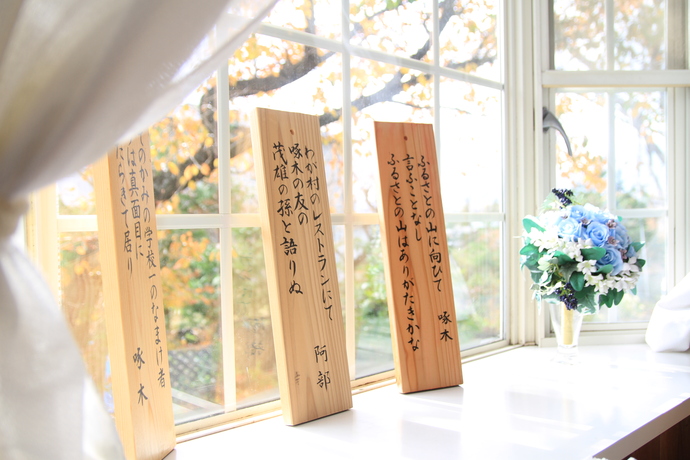 ふるさとの山に向ひて
言ふことなし
ふるさとの山はありがたきかな
啄木
わが村のレストランにて
啄木の友の
茂雄の孫と語りぬ
阿部
のかみの学校一のなまけ者
は真面目に
たらきて居り
啄木